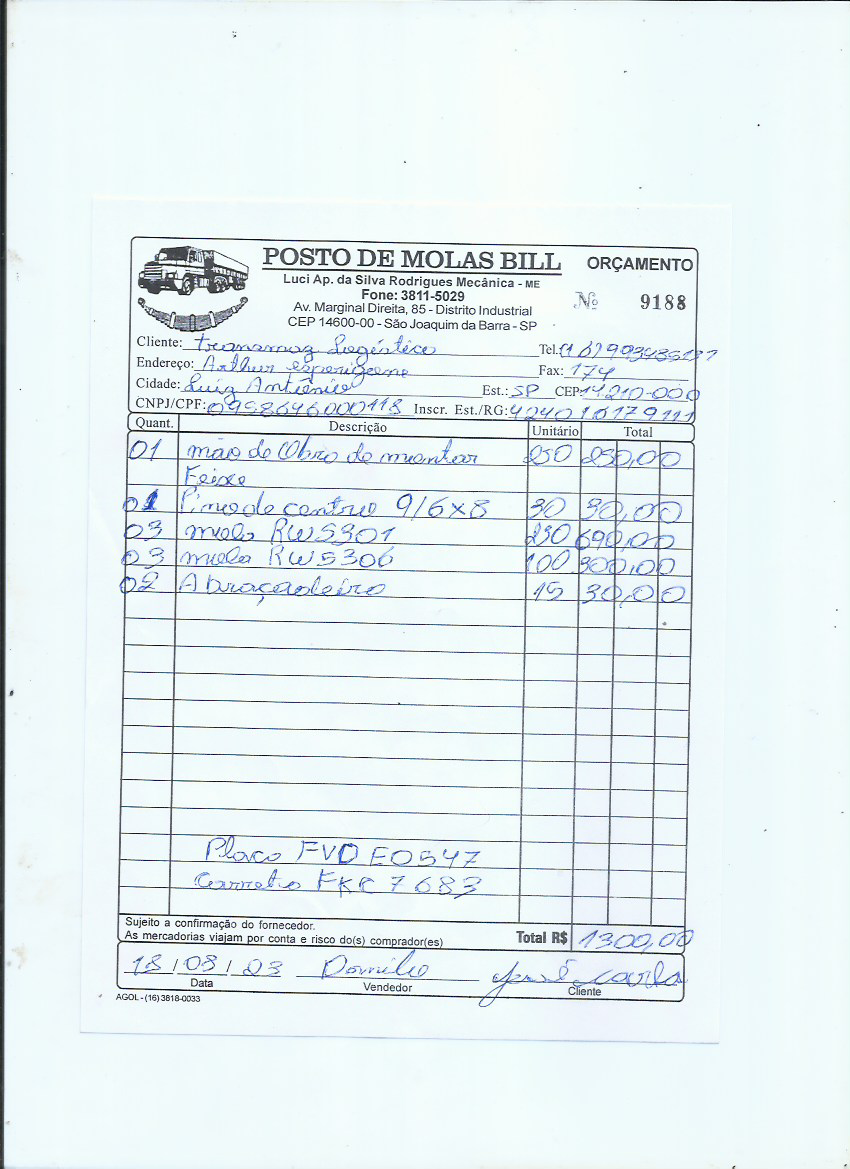 POSTO DE MOLAS BILL
ORÇAMENTO
Luci Ap. da Silva Rodrigues Mecânica - ME
Fone: 3811-5029
Nº 9188
Av. Marginal Direita, 85 - Distrito Industrial
CEP 14600-00 - São Joaquim da Barra - SP
Cliente: Transmaz Logística Tel.:
Endereço: Arthur Fax: 174
Cidade: Luiz Antônio Est.: SP CEP 14210-000
CNPJ/CPF: Inscr. Est./RG:
Quant. Descrição Unitário Total
01 mão de Obra de montar 250 250,00
Feixe
01 Pino de centro 9/6x8 30 30,00
03 mola RW5301 230 690,00
03 mola RW5306 100 300,00
02 Abraçadeira 15 30,00
Placa FVD E0547
Carreta FKC 7683
Sujeito a confirmação do fornecedor.
As mercadorias viajam por conta e risco do(s) comprador(es)
Total R$ 1300,00
18/08/23
Data Vendedor Cliente
AGOL - (16) 3818-0033